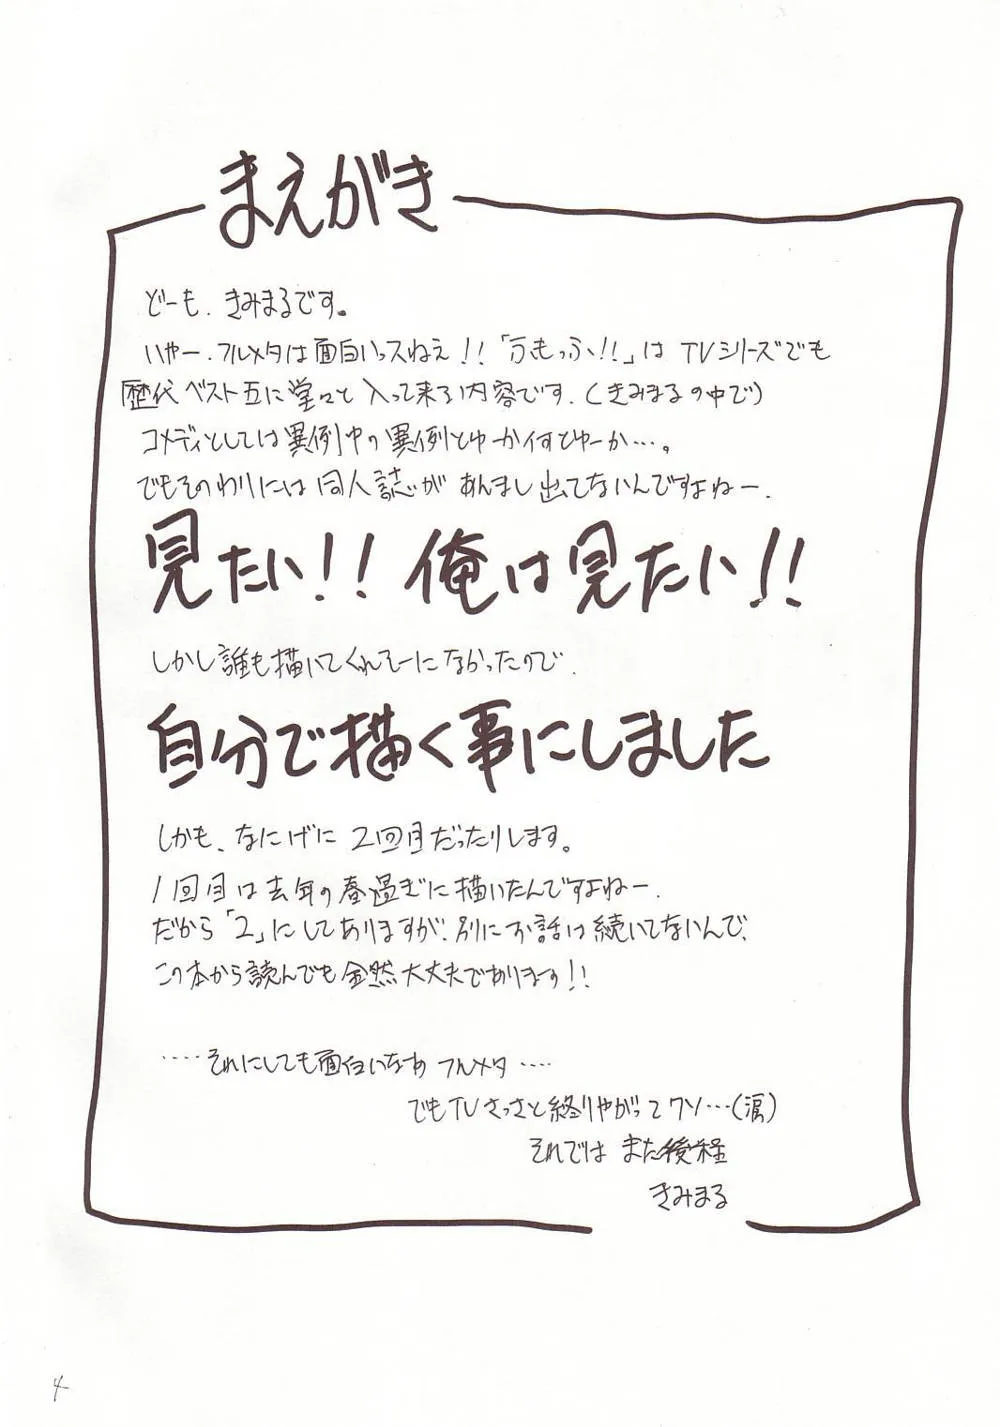 まえがき
どーも、きみまるです。
いやー、フルメタは面白いっスねえ!!「ふもっふ!!」はTVシリーズでも
歴代ベスト五に堂々と入って来る内容です。(きみまるの中で)
コメディとしては異例中の異例とゆーか何すとゆーか…。
でもそのわりには同人誌があんまし出てないんですよねー、
見たい!!俺は見たい!!
しかし誰も描いてくれそーになかったので、
自分で描く事にしました
しかも、なにげに2回目だったりします。
1回目は去年の春過ぎに描いたんですよねー、
だから「2」にしてありますが、別にお話は続いてないんで、
この本から読んでも全然大丈夫であります!!
‥‥それにしても面白いなあフルメタ‥‥
でもTVさっさと終りやがってクソ…(涙)
それではまた後程
きみまる
4